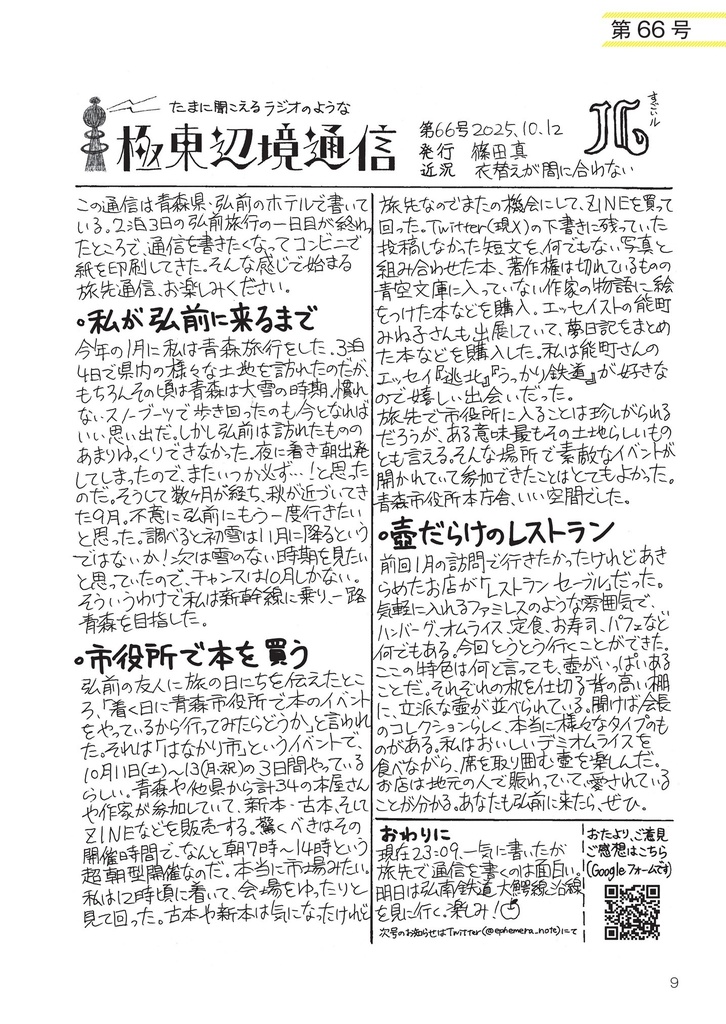 第66号
たまに聞こえるラジオのような
極東辺境通信
第66号2025.10.12
発行 篠田真
近況 衣替えが間に合わない
すごいル
この通信は青森県・弘前のホテルで書いて
いる。2泊3日の弘前旅行の一日目が終わっ
たところで、通信を書きたくなってコンビニで
紙を印刷してきた。そんな感じで始まる
旅先通信、お楽しみください。
•私が弘前に来るまで
今年の1月に私は青森旅行をした。3泊
4日で県内の様々な土地を訪れたのだが、
もちろんその頃は青森は大雪の時期。慣れ
ないスノーブーツで歩き回ったのも今となれば
いい思い出だ。しかし弘前は訪れたものの
あまりゆっくりできなかった。夜に着き朝出発
してしまったので、またいつか必ず…！と思った
のだ。そうして数ヶ月が経ち、秋が近づいてき
た9月。不意に弘前にもう一度行きたい
と思った。調べると初雪は11月に降るという
ではないか！次は雪のない時期を見たい
と思っていたので、チャンスは10月しかない。
そういうわけで私は新幹線に乗り、一路
青森を目指した。
•市役所で本を買う
弘前の友人に旅の日にちを伝えたとこ
ろ、「着く日に青森市役所で本のイベント
をやっているから行ってみたらどうか」と言われ
た。それは「はなかり市」というイベントで、
10月11日(土)〜13(月・祝)の3日間やっている
らしい。青森や他県から計34の本屋さん
や作家が参加していて、新本・古本、そして
ZINEなどを販売する。驚くべきはその
開催時間で、なんと朝7時〜14時という
超朝型開催なのだ。本当に市場みたい。
私は12時頃に着いて、会場をゆったりと
見て回った。古本や新本は気になったけれど
旅先なのでまたの機会にして、ZINEを買って
回った。Twitter(現X)の下書きに残っていた
投稿しなかった短文を、何でもない写真と
組み合わせた本、著作権は切れているものの
青空文庫に入っていない作家の物語に絵
をつけた本などを購入。エッセイストの能町
みね子さんも出展していて、夢日記をまとめ
た本などを購入した。私は能町さんの
エッセイ『逃北』『うっかり鉄道』が好きな
ので嬉しい出会いだった。
旅先で市役所に入ることは珍しがられる
だろうが、ある意味最もその土地らしいもの
とも言える。そんな場所で素敵なイベントが
開かれていて参加できたことはとてもよかった。
青森市役所本庁舎、いい空間でした。
•壺だらけのレストラン
前回1月の訪問で行きたかったけれどあき
らめたお店が「レストラン セーブル」だった。
気軽に入れるファミレスのような雰囲気で、
ハンバーグ、オムライス、定食、お寿司、パフェなど
何でもある。今回とうとう行くことができた。
ここの特色は何と言っても、壺がいっぱいある
ことだ。それぞれの机を仕切る背の高い棚
に、立派な壺が並べられている。聞けば会長
のコレクションらしく、本当に様々なタイプのも
のがある。私はおいしいデミオムライスを
食べながら、席を取り囲む壺を楽しんだ。
お店は地元の人で賑わっていて、愛されている
ことが分かる。あなたも弘前に来たら、ぜひ。
おわりに
現在23:09。一気に書いたが
旅先で通信を書くのは面白い。
明日は弘南鉄道大鰐線沿線
を見に行く。楽しみ！
次号のお知らせはTwitter(@ephemera_note)にて
おたより、ご意見
ご感想はこちら
(Googleフォームです)
9